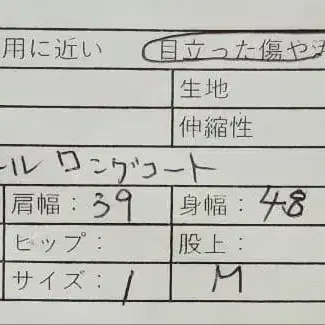 用に近い 目立った傷や
生地
伸縮性
ール ロングコート
肩幅： 39 身幅： 48
ヒップ： 股上：
サイズ： 1 M